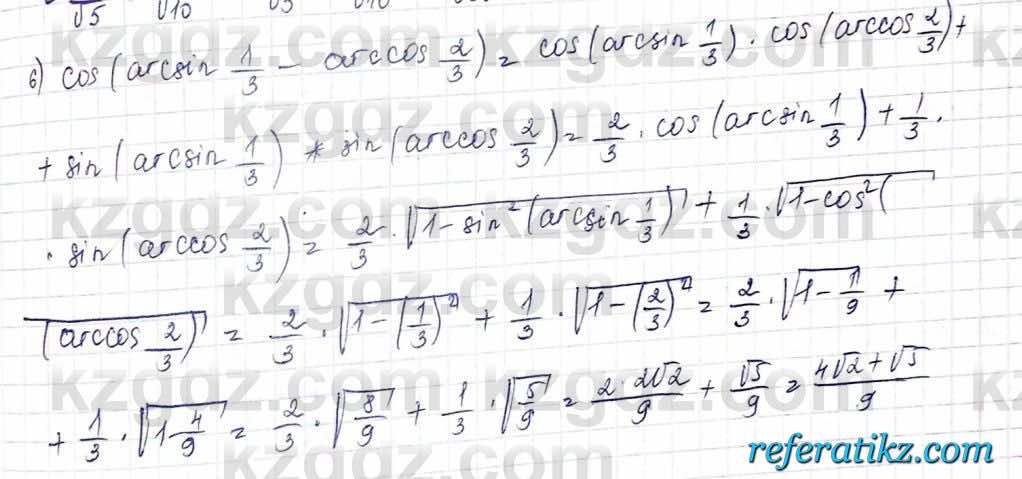 √5 √10 √5 √10
6) cos(arcsin 1/3 - arccos 2/3) = cos(arcsin 1/3) · cos(arccos 2/3) +
+ sin(arcsin 1/3) * sin(arccos 2/3) = 2/3 · cos(arcsin 1/3) + 1/3 ·
· sin(arccos 2/3) = 2/3 · √(1 - sin²(arcsin 1/3)) + 1/3 · √(1 - cos²(
(arccos 2/3)) = 2/3 · √(1 - (1/3)²) + 1/3 · √(1 - (2/3)²) = 2/3 · √(1 - 1/9) +
+ 1/3 · √(1 - 4/9) = 2/3 · √(8/9) + 1/3 · √(5/9) = 2·2√2/9 + √5/9 = 4√2+√5/9
referatikz.com
kzgdz.com